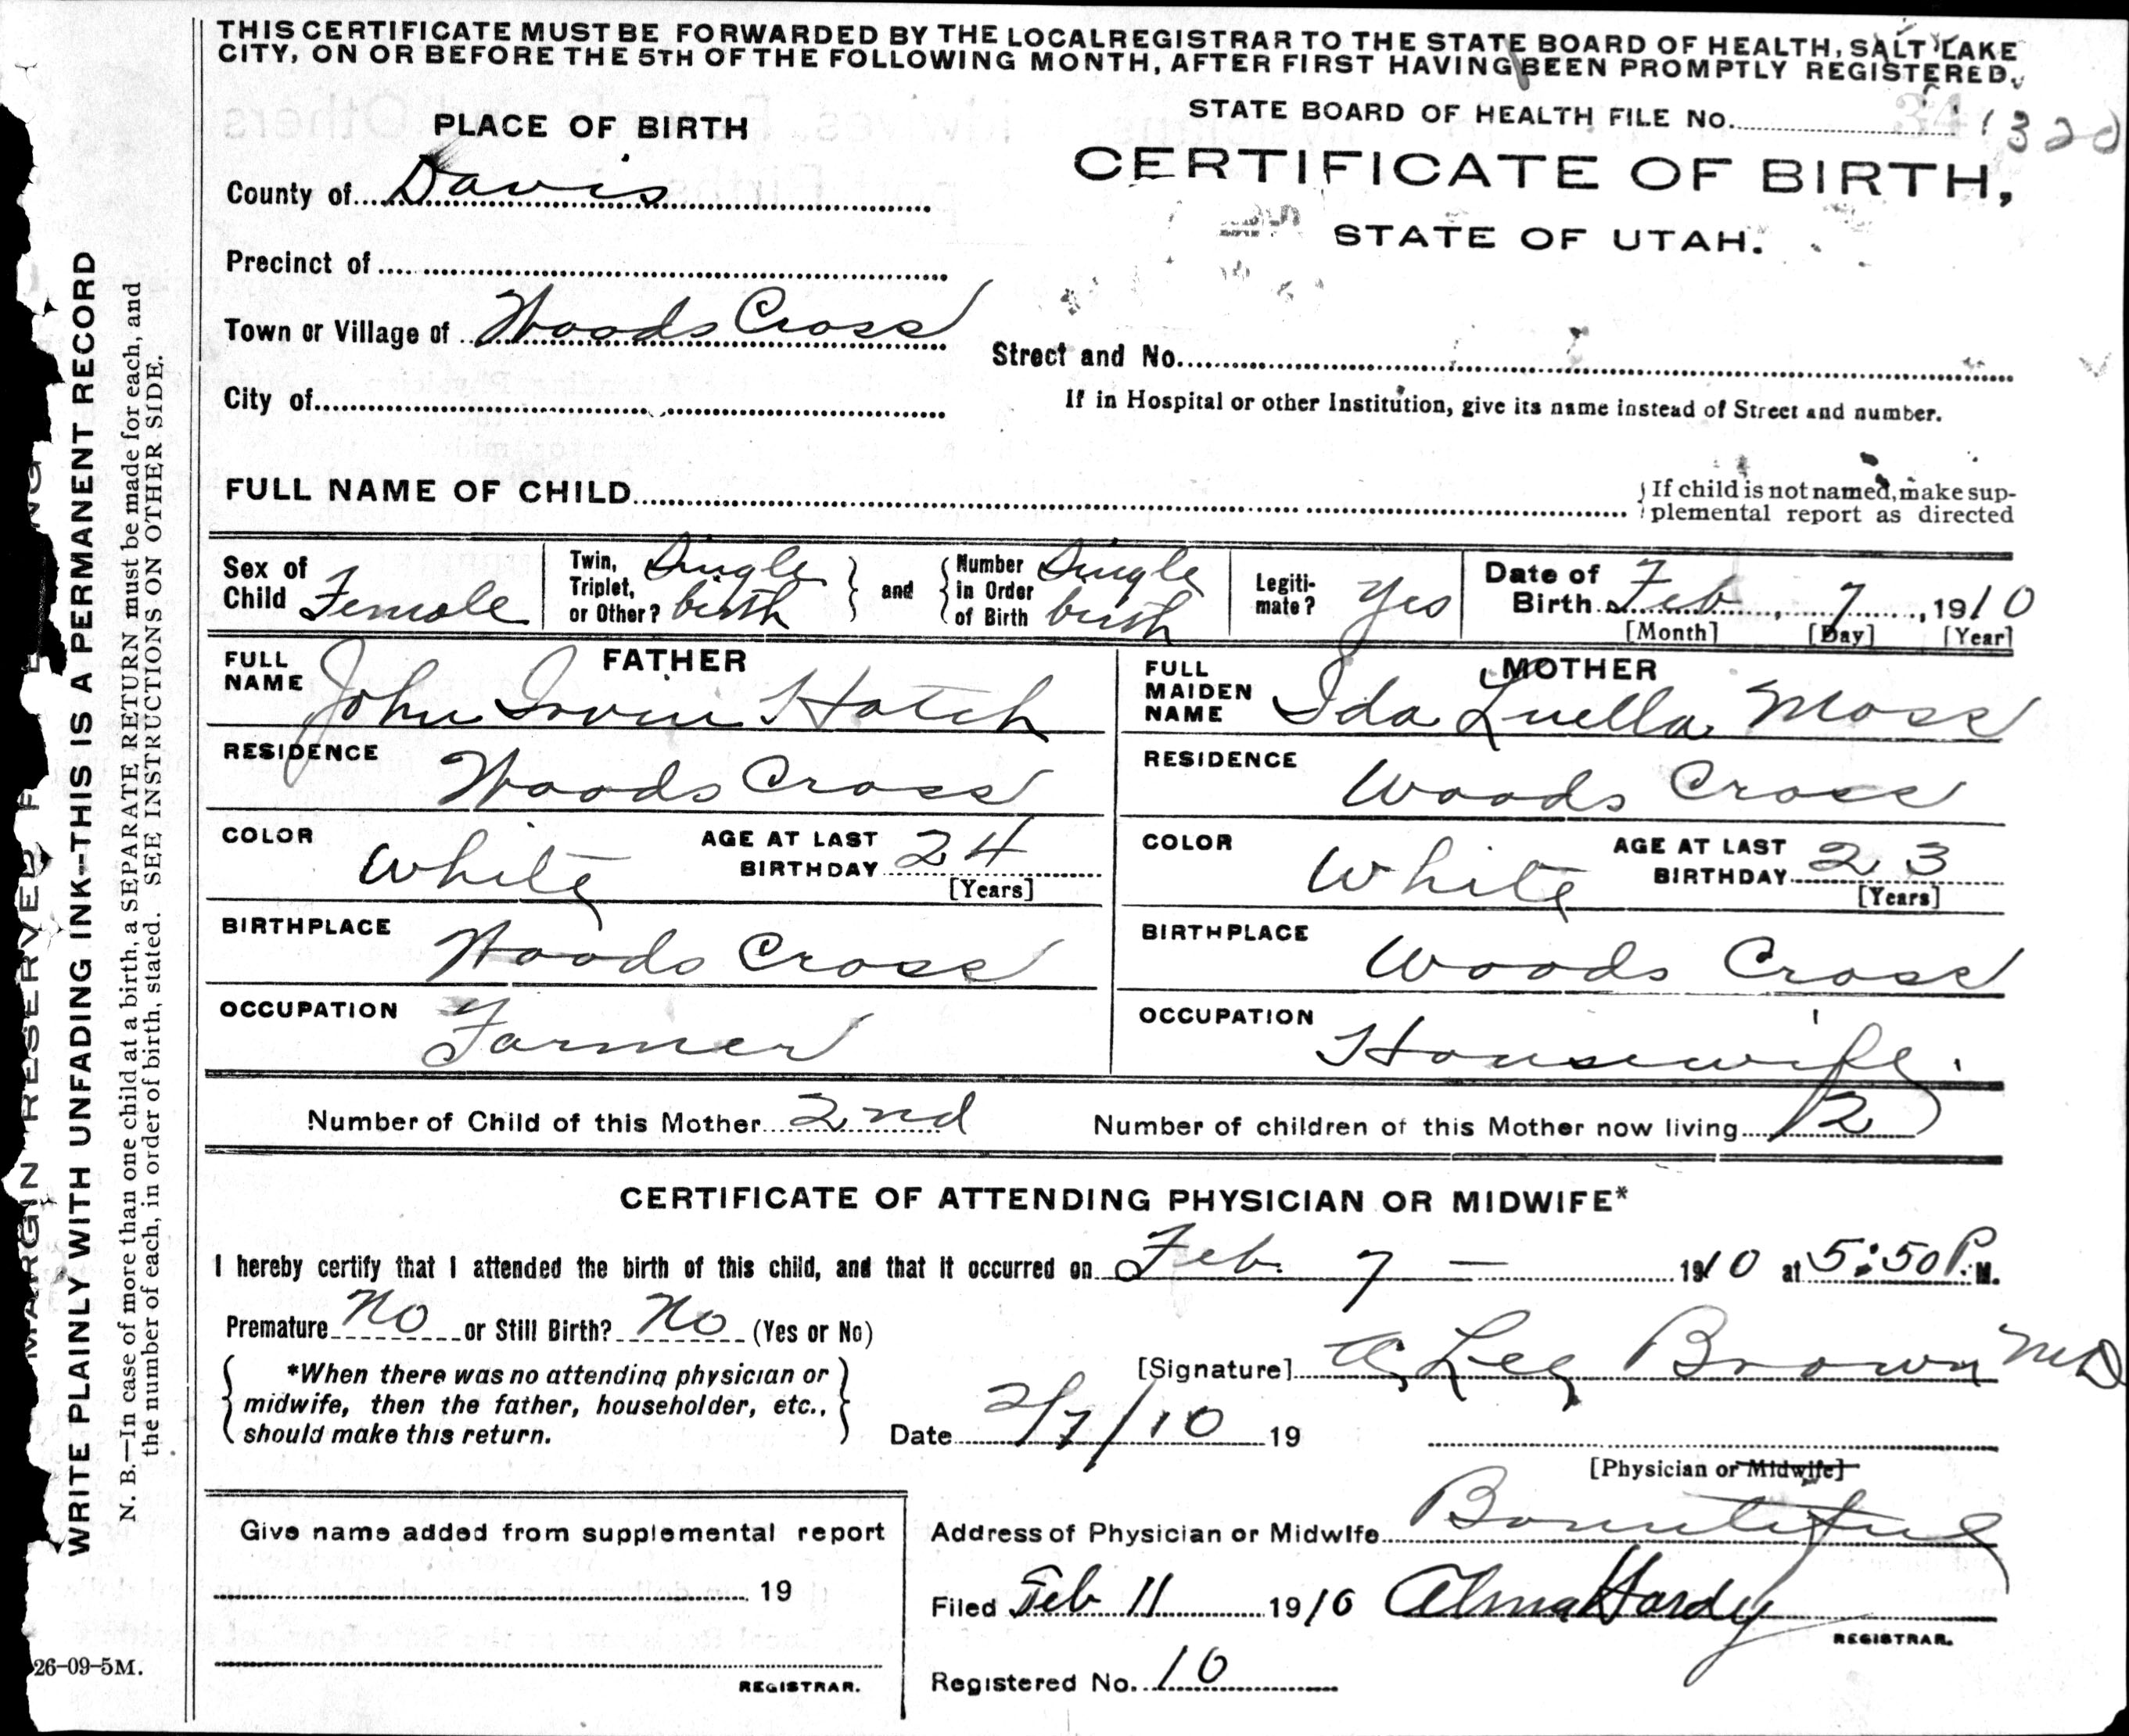 THIS CERTIFICATE MUST BE FORWARDED BY THE LOCAL REGISTRAR TO THE STATE BOARD OF HEALTH, SALT LAKE
CITY, ON OR BEFORE THE 5TH OF THE FOLLOWING MONTH, AFTER FIRST HAVING BEEN PROMPTLY REGISTERED.
STATE BOARD OF HEALTH FILE No. 320
PLACE OF BIRTH
CERTIFICATE OF BIRTH,
STATE OF UTAH.
County of Davis
Precinct of
Town or Village of Woods Cross
Street and No.
City of
If in Hospital or other Institution, give its name instead of Street and number.
FULL NAME OF CHILD
If child is not named, make sup-
plemental report as directed
Sex of Child Female
Twin, Triplet, or Other? Single birth
and
Number in Order of Birth Single birth
Legiti-mate? Yes
Date of Birth Feb 7, 1910
[Month] [Day] [Year]
FATHER
FULL NAME John Irvin Hatch
RESIDENCE Woods Cross
COLOR White AGE AT LAST BIRTHDAY 24
[Years]
BIRTHPLACE Woods Cross
OCCUPATION Farmer
MOTHER
FULL MAIDEN NAME Ida Luella Moss
RESIDENCE Woods Cross
COLOR White AGE AT LAST BIRTHDAY 23
[Years]
BIRTHPLACE Woods Cross
OCCUPATION Housewife
Number of Child of this Mother 2nd Number of children of this Mother now living 2
CERTIFICATE OF ATTENDING PHYSICIAN OR MIDWIFE*
I hereby certify that I attended the birth of this child, and that it occurred on Feb. 7 — 1910 at 5:50 P. M.
Premature No or Still Birth? No (Yes or No)
*When there was no attending physician or
midwife, then the father, householder, etc.,
should make this return.
[Signature] Lee Brown MD
Date 2/7/10 19
[Physician or Midwife]
Give name added from supplemental report
19
REGISTRAR.
Address of Physician or Midwife Bountiful
Filed Feb 11 1910 Alma Hardy
REGISTRAR.
Registered No. 10
MARGIN RESERVED F
WRITE PLAINLY WITH UNFADING INK--THIS IS A PERMANENT RECORD
N. B.—In case of more than one child at a birth, a SEPARATE RETURN must be made for each, and
the number of each, in order of birth, stated. SEE INSTRUCTIONS ON OTHER SIDE.
26-09-5M.